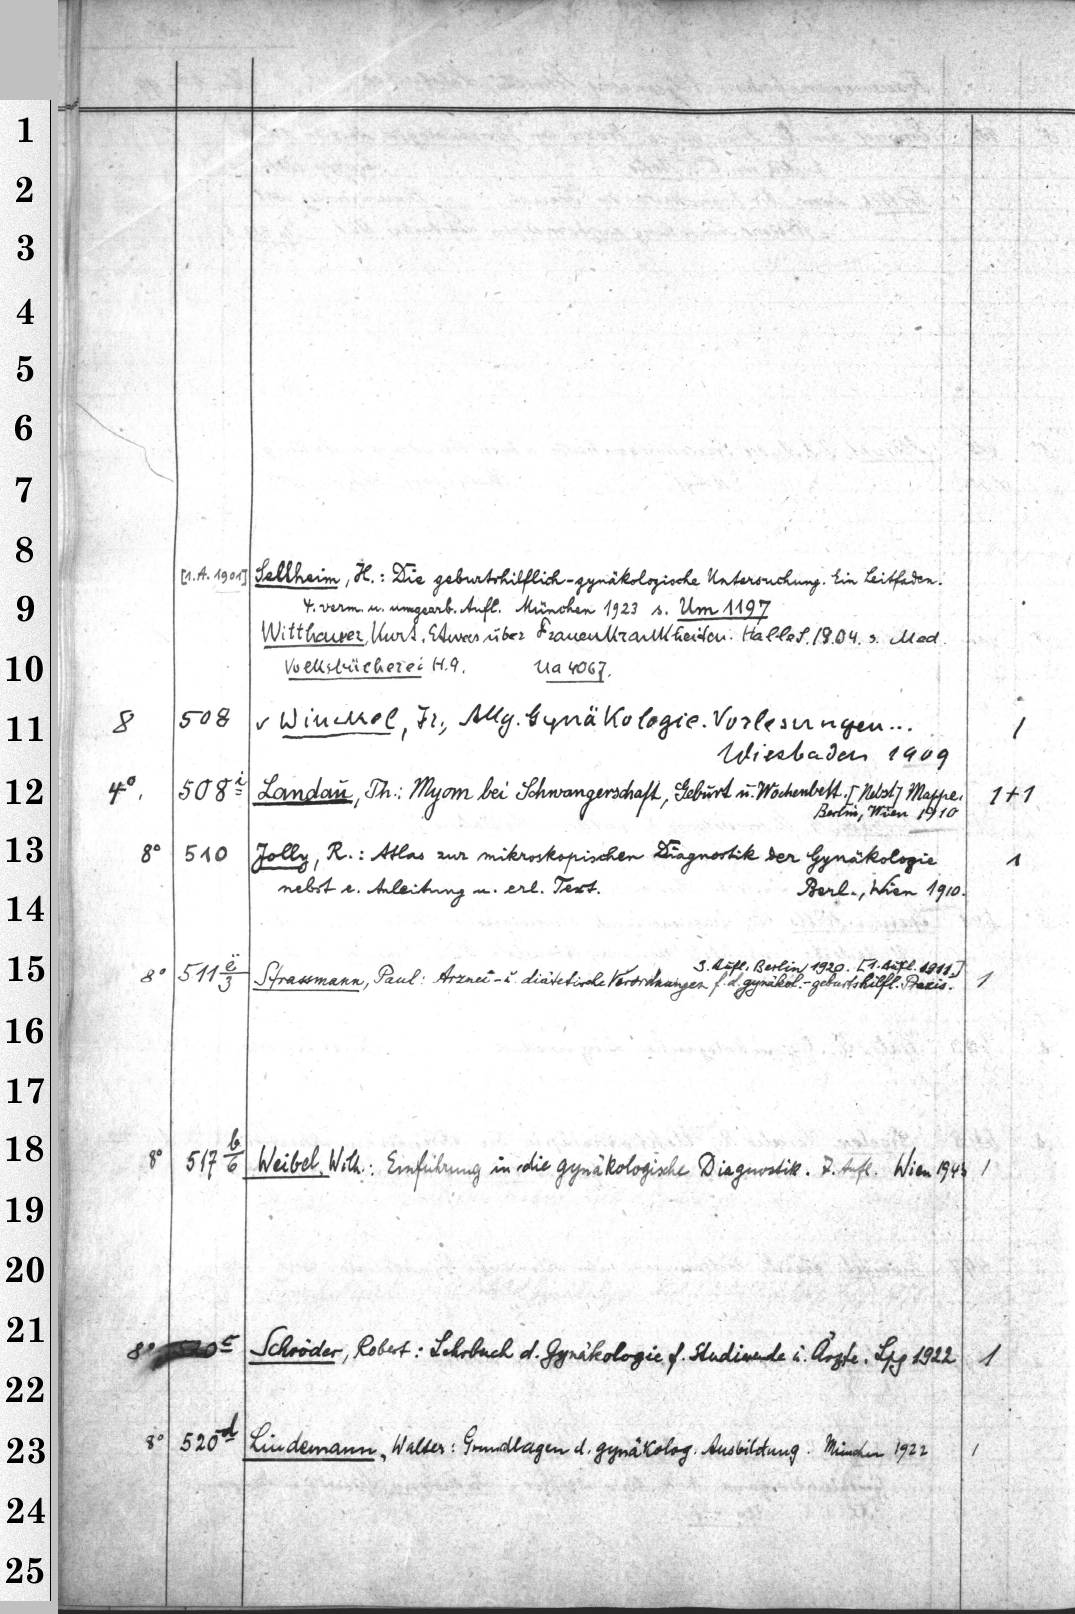 1
2
3
4
5
6
7
8
[1. A. 1901] Sellheim, H.: Die geburtshilflich-gynäkologische Untersuchung. Ein Leitfaden.
9
4. verm. u. umgearb. Aufl. München 1923 s. Um 1197
Witthauer, Kurt, Etwas über Frauenkrankheiten. Halle S. 19.04. s. Med.
10
Volksbücherei H.9. Ua 4067.
11 8 508 v Winckel, Fr., Allg. Gynäkologie. Vorlesungen... 1
Wiesbaden 1909
12 4°. 508 i Landau, Th.: Myom bei Schwangerschaft, Geburt u. Wochenbett. [Nebst] Mappe. 1+1
Berlin, Wien 1910
13 8° 510 Jolly, R.: Atlas zur mikroskopischen Diagnostik der Gynäkologie 1
14 nebst e. Anleitung u. erl. Text. Berl., Wien 1910.
15 3. Aufl. Berlin 1920. [1. Aufl. 1911.]
8° 511 e/3 Strassmann, Paul: Arznei- u. diätetische Verordnungen f. d. gynäkol.-geburtshilfl. Praxis. 1
16
17
18 8° 517 b/6 Weibel, Wilh.: Einführung in die gynäkologische Diagnostik. 7. Aufl. Wien 1943 1
19
20
21 8° 520 c Schröder, Robert: Lehrbuch d. Gynäkologie f. Studierende u. Ärzte. Lpg 1922 1
22
23 8° 520 d Lindemann, Walter: Grundlagen d. gynäkolog. Ausbildung. München 1922 1
24
25